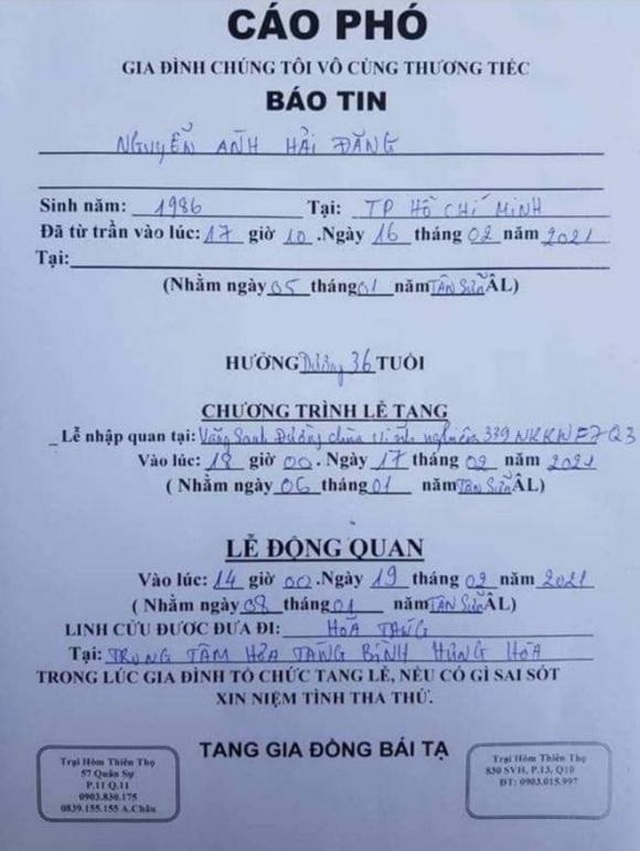 CÁO PHÓ
GIA ĐÌNH CHÚNG TÔI VÔ CÙNG THƯƠNG TIẾC
BÁO TIN
NGUYỄN ANH HẢI ĐĂNG
Sinh năm: 1986 Tại: TP HỒ CHÍ MINH
Đã từ trần vào lúc: 17 giờ 10 .Ngày 16 tháng 02 năm 2021
Tại:
(Nhằm ngày 05 tháng 01 năm TÂN Sửu ÂL)
HƯỞNG Dương 36 TUỔI
CHƯƠNG TRÌNH LỄ TANG
_ Lễ nhập quan tại: Vãng Sanh Đường chùa Vĩnh nghiêm 339 NKKN F7 Q3
Vào lúc: 18 giờ 00. Ngày 17 tháng 02 năm 2021
( Nhằm ngày 06 tháng 01 năm TÂN Sửu ÂL)
LỄ ĐỘNG QUAN
Vào lúc: 14 giờ 00 .Ngày 19 tháng 02 năm 2021
( Nhằm ngày 08 tháng 01 năm TÂN Sửu ÂL)
LINH CỬU ĐƯỢC ĐƯA ĐI: HỎA TÁNG
Tại: TRUNG TÂM HỎA TÁNG BÌNH HƯNG HÒA
TRONG LÚC GIA ĐÌNH TỔ CHỨC TANG LỄ, NẾU CÓ GÌ SAI SÓT
XIN NIỆM TÌNH THA THỨ.
TANG GIA ĐỒNG BÁI TẠ
Trại Hòm Thiên Thọ
57 Quân Sự
P.11 Q.11
0903.830.175
0839.155.155 A.Châu
Trại Hòm Thiên Thọ
830 SVH, P.13, Q10
ĐT: 0903.015.997